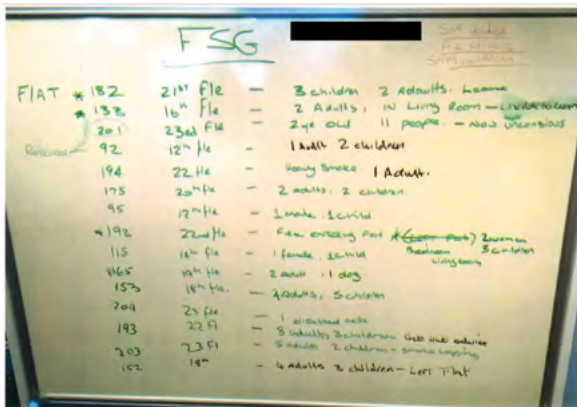 FSG
FLAT * 182 21st Flr — 3 children 2 Adoults.
* 133 16th Flr — 2 Adults, IN Living Room —
201 23rd Flr — 2ye old 11 people. — Now unconsious
92 12th flr — 1 Adult 2 children
194 22 flr — Heavy Smoke. 1 Adult.
175 20th flr — 2 adults, 2 children.
95 12th flr — 1 male, 1 child
*192 22nd flr — entering Flat 2 women
Bedroom 3 children
115 14th flr — 1 female, 1 child
165 19th flr — 2 adult, 1 dog
153 18th flr. — Adults, 5 children
204 23 flr — 1
193 22 Fl — 3 children Got out advise
203 23 Fl — 5 adults 2 children - smoke logging
152 18th — 4 Adults 3 children — Left Flat